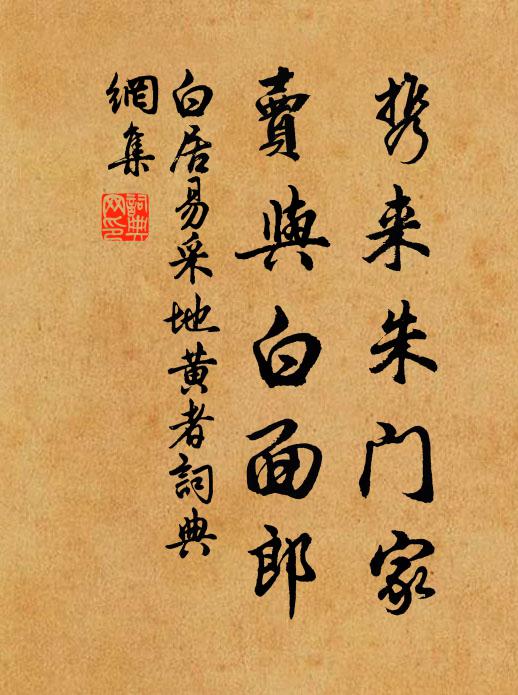 携来朱门家
賣與白面郎
白居易采地黄者詞典
網集
詞典网印